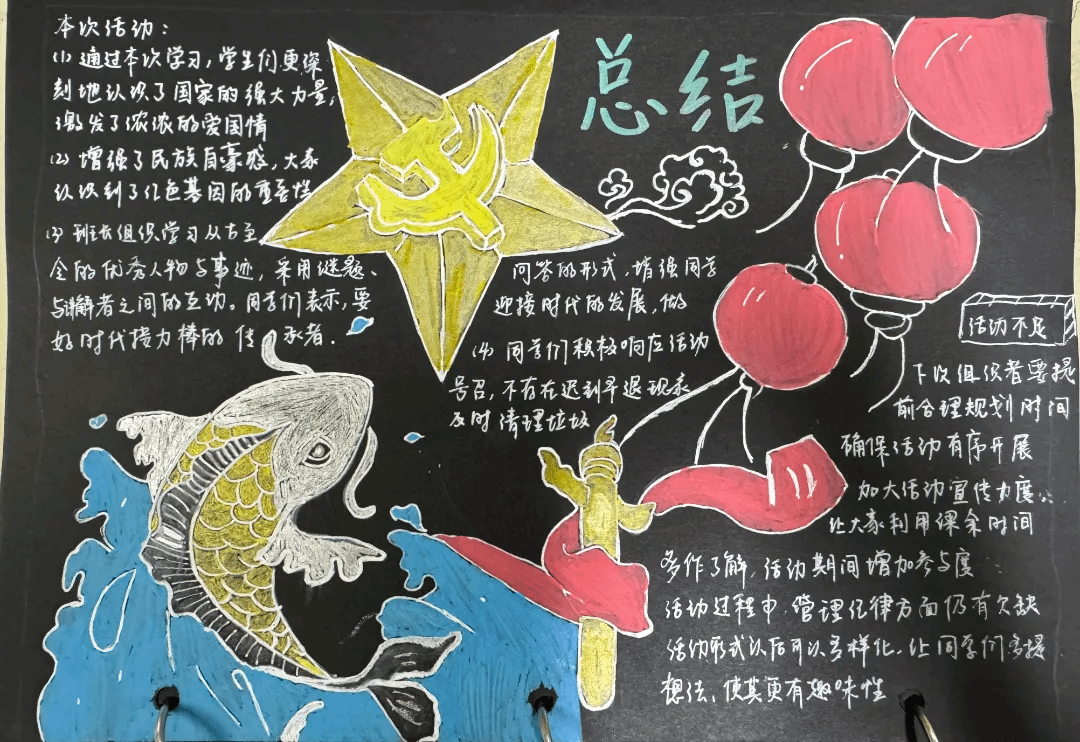 总结
本次活动：
(1) 通过本次学习，学生们更深
刻地认识了国家的强大力量，
激发了浓浓的爱国情
(2) 增强了民族自豪感，大家
认识到了红色基因的重要性
(3) 班长组织学习从古至
今的优秀人物与事迹，采用谜题、
与讲解者之间的互动。同学们表示，要
好时代接力棒的传承者.
问答的形式，增强同学
迎接时代的发展，做
(4) 同学们积极响应活动
号召，不存在迟到早退现象
及时清理垃圾
活动不足
下次组织者要提
前合理规划时间
确保活动有序开展
加大活动宣传力度..
让大家利用课余时间
多作了解，活动期间增加参与度.
活动过程中，管理纪律方面仍有欠缺
活动形式以后可以多样化，让同学们多提
想法、使其更有趣味性